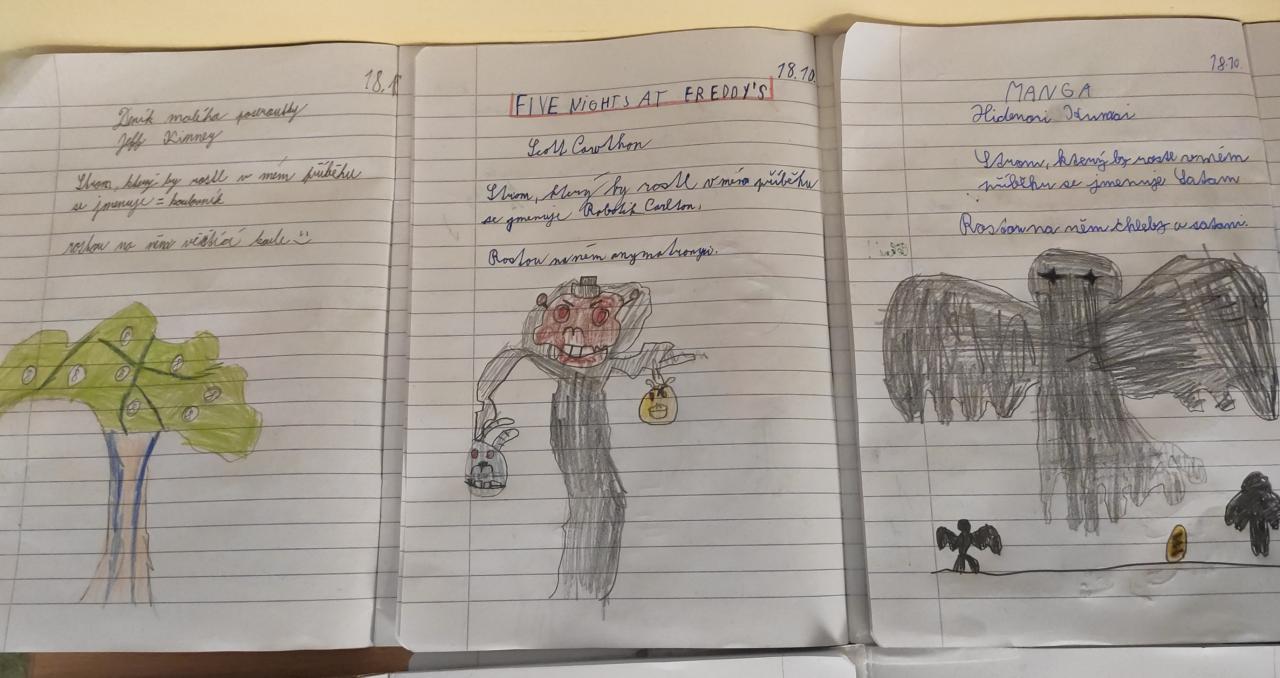 18.1
Deník malého poseroutky
Jeff Kinney
Strom, který by rostl v mém příběhu
se jmenuje =
rostou na něm
18.10.
FIVE NIGHTS AT FREDDY'S
Scott Cawthon
Strom, který by rostl v mém příběhu
se jmenuje Robotik Carlton.
Rostou na něm anymatronyci.
18.10.
MANGA
Hidenori Kusaka
Strom, který by rostl v mém
příběhu se jmenuje Satam
Rostou na něm chleby a satani.